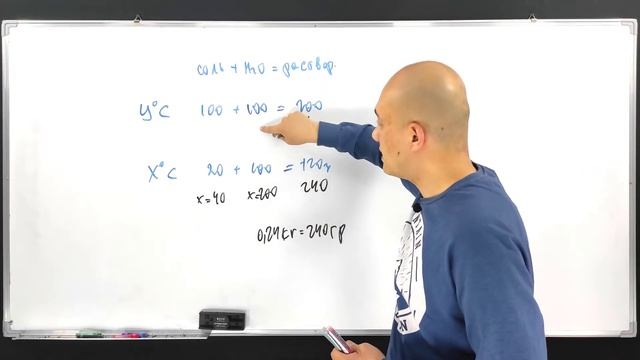 соль + H2O = раствор.
y°C 100 + 100 = 200
x°C 20 + 100 = 120г
x=40 x=200 240
0,24кг = 240гр